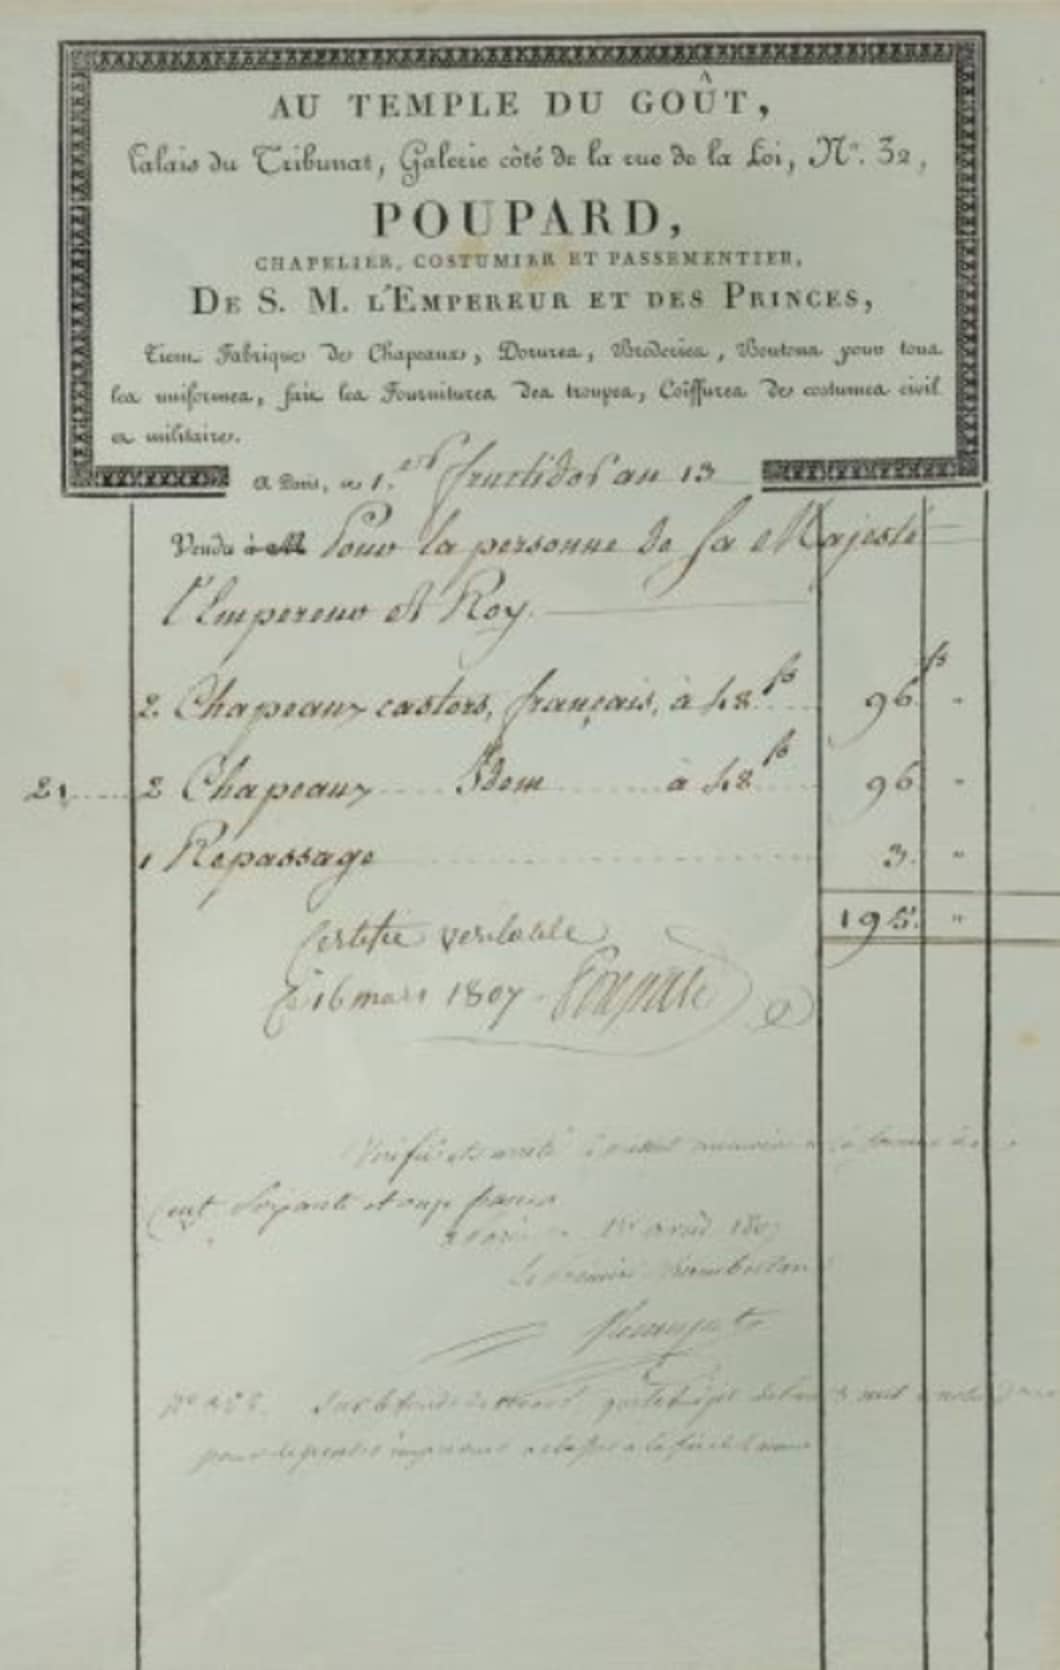 AU TEMPLE DU GOÛT,
Palais du Tribunat, Galerie côté de la rue de la Loi, N°. 32,
POUPARD,
CHAPELIER, COSTUMIER ET PASSEMENTIER,
DE S. M. L'EMPEREUR ET DES PRINCES,
Tient Fabrique de Chapeaux, Dorures, Broderies, Boutons pour tous
les uniformes, fait les Fournitures des troupes, Coiffures de costumes civil
et militaire.
A Paris, ce 1.er fructidor an 13
Vendu à M Pour la personne de Sa Majesté
l'Empereur et Roy.
2 Chapeaux castors, français, à 48 fs 96 fs "
21 2 Chapeaux Idem à 48 fs 96 "
1 Repassage 3. "
195. "
Certifié veritable
Ce 16 mars 1807 Poupard
Vérifié et arreté
Cent Soixante et onze francs
à Paris 1er avril 1807
Le premier Chambellan
Sur le fonds